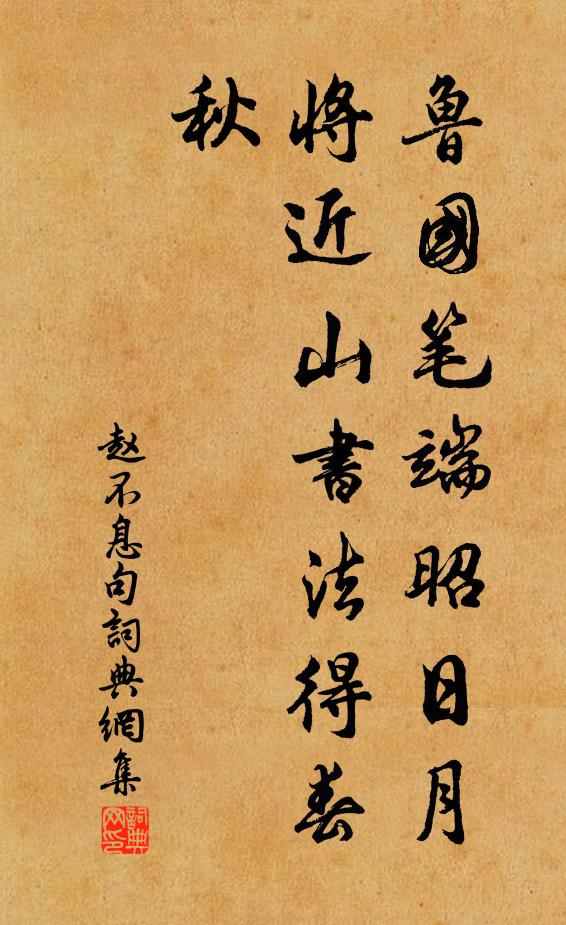 魯國笔端昭日月
將近山書法得春
秋
赵不息句詞典網集
詞典网印